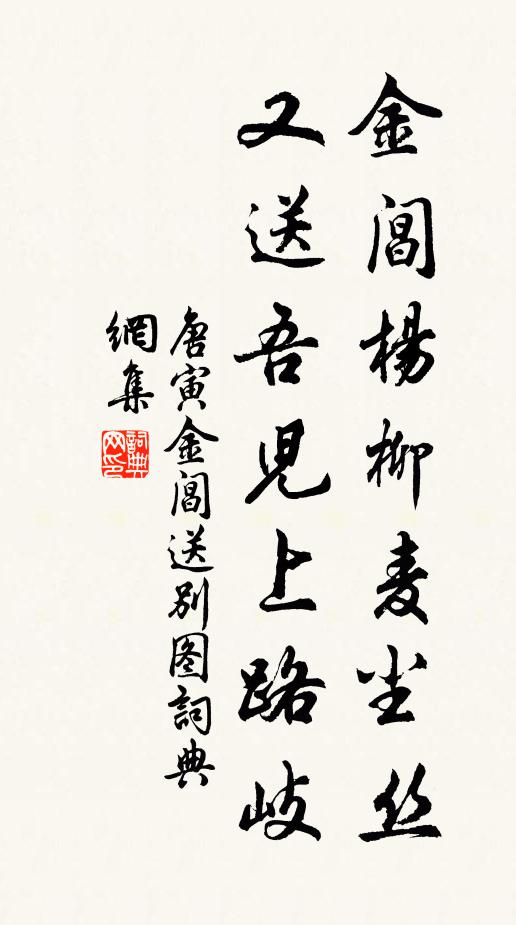 金阊楊柳麦尘丝
又送吾児上路岐
唐寅金阊送别图詞典
網集
詞典
网印